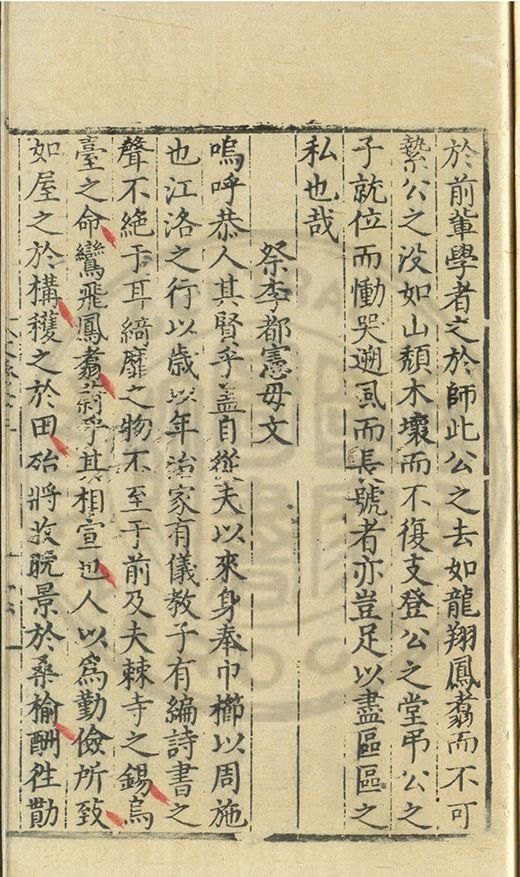 於前輩學者之於師此公之去如龍翔鳳翥而不可
縶公之没如山頹木壞而不復支登公之堂弔公之
子就位而慟哭遡風而長號者亦豈足以盡區區之
私也哉
祭李都憲母文
嗚呼恭人其賢乎盖自從夫以來身奉巾櫛以周施
也江洛之行以歲以年治家有儀教子有編詩書之
聲不絶于耳綺靡之物不至于前及夫棘寺之錫烏
臺之命鸞飛鳳翥蔚乎其相宣也人以為勤儉所致
如屋之於構穫之於田殆將收晩景於桑榆酬徃勚